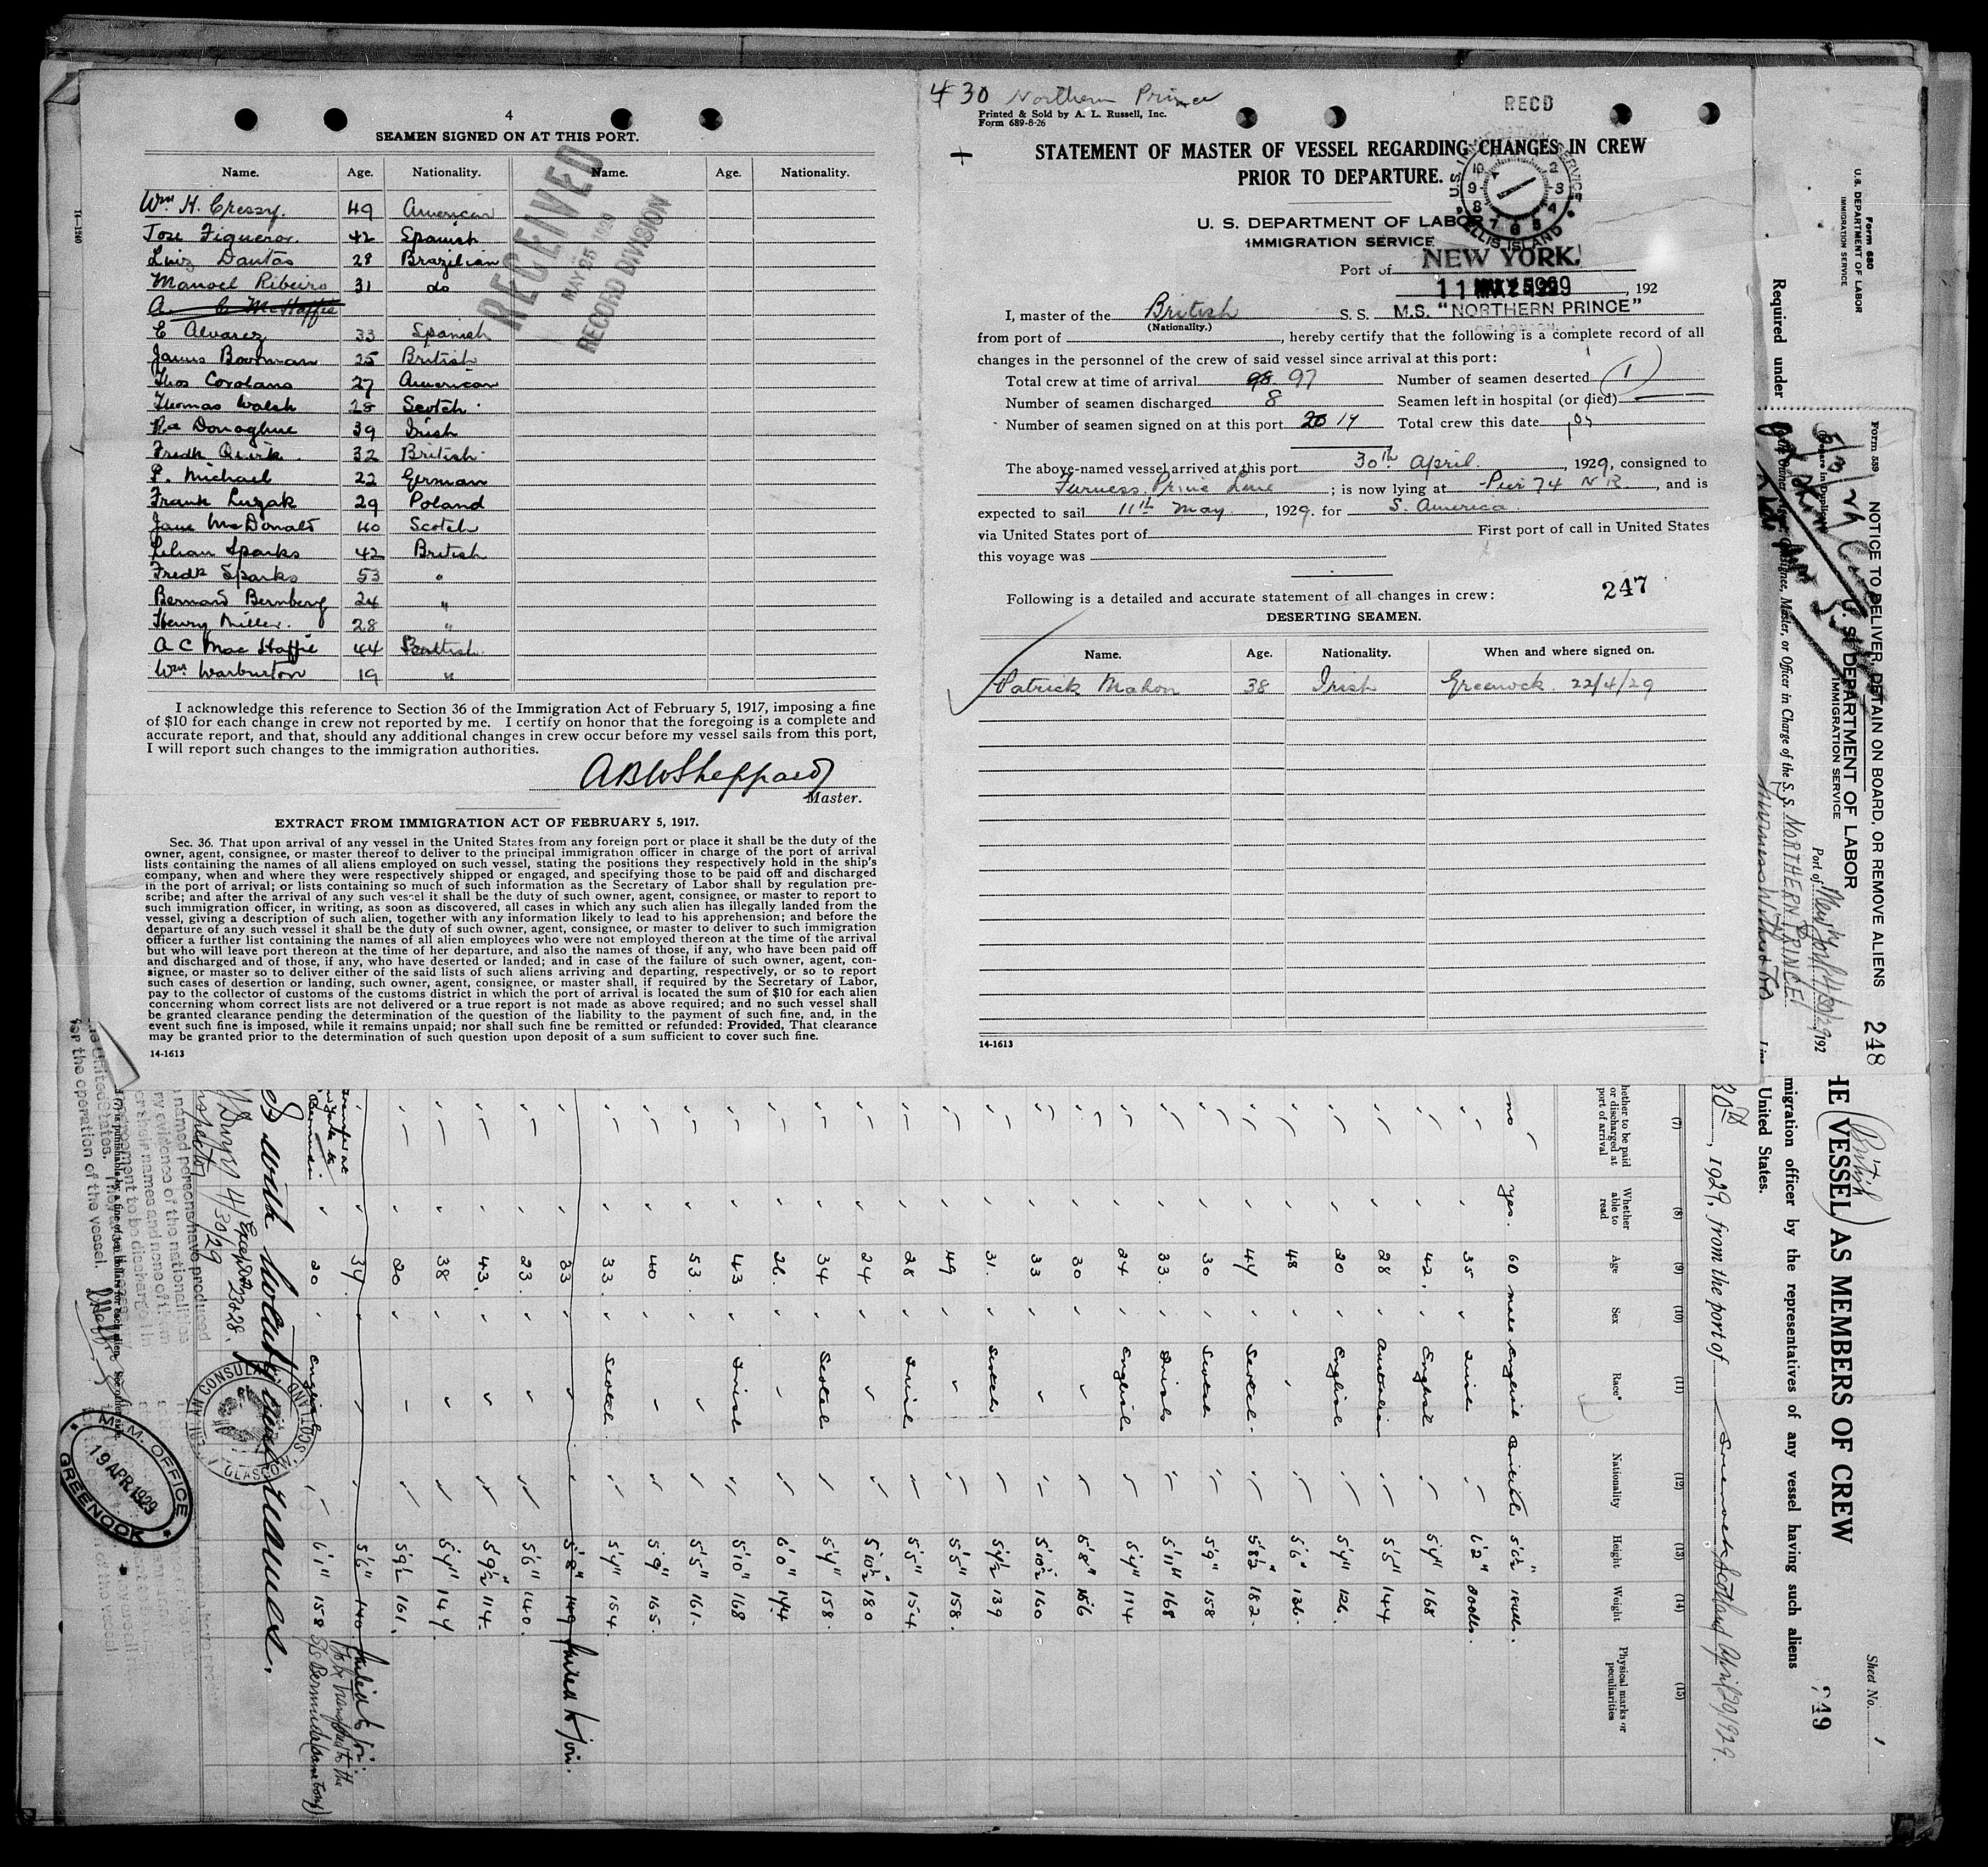 4
SEAMEN SIGNED ON AT THIS PORT.
Name. Age. Nationality. Name. Age. Nationality.
Wm H. Cressy. 49 American
Jose Figueroa. 42 Spanish
Luiz Dantas 28 Brazilian
Manoel Ribeiro 31 do
A. C McHaffie
E Alvarez 33 Spanish
James Bowman 25 British
Thos Corolano 27 American
Thomas Walsh 28 Scotch
Donaghue 39 Irish
Fredk Quirk 32 British
P. Michael 22 German
Frank Luzak 29 Poland
Jane McDonald 40 Scotch
Lilian Sparks 42 British
Fredk Sparks 53 "
Bernard Bernberg 24 "
Henry Miller. 28 "
A C MacHaffie 44 Scottish
Wm Warburton 19 "
RECEIVED
MAY 25 1929
RECORD DIVISION
I acknowledge this reference to Section 36 of the Immigration Act of February 5, 1917, imposing a fine
of $10 for each change in crew not reported by me. I certify on honor that the foregoing is a complete and
accurate report, and that, should any additional changes in crew occur before my vessel sails from this port,
I will report such changes to the immigration authorities.
ABWSheppard
Master.
EXTRACT FROM IMMIGRATION ACT OF FEBRUARY 5, 1917.
Sec. 36. That upon arrival of any vessel in the United States from any foreign port or place it shall be the duty of the
owner, agent, consignee, or master thereof to deliver to the principal immigration officer in charge of the port of arrival
lists containing the names of all aliens employed on such vessel, stating the positions they respectively hold in the ship's
company, when and where they were respectively shipped or engaged, and specifying those to be paid off and discharged
in the port of arrival; or lists containing so much of such information as the Secretary of Labor shall by regulation pre-
scribe; and after the arrival of any such vessel it shall be the duty of such owner, agent, consignee, or master to report to
such immigration officer, in writing, as soon as discovered, all cases in which any such alien has illegally landed from the
vessel, giving a description of such alien, together with any information likely to lead to his apprehension; and before the
departure of any such vessel it shall be the duty of such owner, agent, consignee, or master to deliver to such immigration
officer a further list containing the names of all alien employees who were not employed thereon at the time of the arrival
but who will leave port thereon at the time of her departure, and also the names of those, if any, who have been paid off
and discharged and of those, if any, who have deserted or landed; and in case of the failure of such owner, agent, con-
signee, or master so to deliver either of the said lists of such aliens arriving and departing, respectively, or so to report
such cases of desertion or landing, such owner, agent, consignee, or master shall, if required by the Secretary of Labor,
pay to the collector of customs of the customs district in which the port of arrival is located the sum of $10 for each alien
concerning whom correct lists are not delivered or a true report is not made as above required; and no such vessel shall
be granted clearance pending the determination of the question of the liability to the payment of such fine, and, in the
event such fine is imposed, while it remains unpaid; nor shall such fine be remitted or refunded: Provided, That clearance
may be granted prior to the determination of such question upon deposit of a sum sufficient to cover such fine.
14-1613
4 30 Northern Prince
Printed & Sold by A. L. Russell, Inc.
Form 689-8-26
RECD
STATEMENT OF MASTER OF VESSEL REGARDING CHANGES IN CREW
PRIOR TO DEPARTURE.
U. S. DEPARTMENT OF LABOR
IMMIGRATION SERVICE
ELLIS ISLAND
Port of NEW YORK.
11 MAY 1929, 192
I, master of the British S. S. M.S. "NORTHERN PRINCE"
(Nationality.)
from port of , hereby certify that the following is a complete record of all
changes in the personnel of the crew of said vessel since arrival at this port:
Total crew at time of arrival 98 97 Number of seamen deserted 1
Number of seamen discharged 8 Seamen left in hospital (or died)
Number of seamen signed on at this port 20 17 Total crew this date 105
The above-named vessel arrived at this port 30th April, 1929, consigned to
Furness Prince Line; is now lying at Pier 74 N R, and is
expected to sail 11th May, 1929. for S. America
via United States port of First port of call in United States
this voyage was
247
Following is a detailed and accurate statement of all changes in crew:
DESERTING SEAMEN.
Name. Age. Nationality. When and where signed on.
Patrick Mahon 38 Irish Greenock 22/4/29
14-1613
14-1240
Form 680
U.S. DEPARTMENT OF LABOR
IMMIGRATION SERVICE
Required under
Form 559
NOTICE TO DELIVER, DETAIN ON BOARD, OR REMOVE ALIENS
U. S. DEPARTMENT OF LABOR
IMMIGRATION SERVICE
248
Port of New York 4/30/29 192
Owner, Agent, Consignee, Master, or Officer in Charge of the S. S. NORTHERN PRINCE
Line
Sheet No. 1
249
THE (British VESSEL) AS MEMBERS OF CREW
migration officer by the representatives of any vessel having such aliens
United States.
30th, 1929, from the port of Greenock Scotland April 20/1929.
(7) (8) (9) (10) (11) (12) (13) (14) (15)
Whether to be paid or discharged at port of arrival
Whether able to read
Age
Sex
Race*
Nationality
Height
Weight
Physical marks or peculiarities
no yes. 60 male English British 5'6½" 184lbs.
35 Irish 6'2" 200lbs.
42 English 5'7" 168
28 Australian 5'5" 144
20 English 5'7" 126.
48 5'6" 136.
44 Scotch 5'8½" 182.
30 Scotch 5'9" 158
33. Irish 5'11" 168
24 English 5'7" 114
30 5'8" 156
33 5'10½" 160
31. Scotch 5'4½ 139
49 5'5" 158.
28 Irish 5'5" 154
24 5'10½" 180
34 Scotch 5'7" 158.
26. 6'0" 144
43 Irish 5'10" 168
53 5'5" 161.
40 5'9" 165.
33. Scotch 5'7" 154.
33 5'8" 149 failed to join.
23. 5'6" 140.
43. 5'9½" 114.
38 5'7" 147.
20 5'9½ 161.
34 5'6" 140 failed to join
20 English 6'1" 158 To be transferred to the
S/S Bermuda (same comp)
4/30/29
AMERICAN CONSULATE GLASGOW, SCOTLAND
M.M. OFFICE
19 APR 1929
GREENOCK